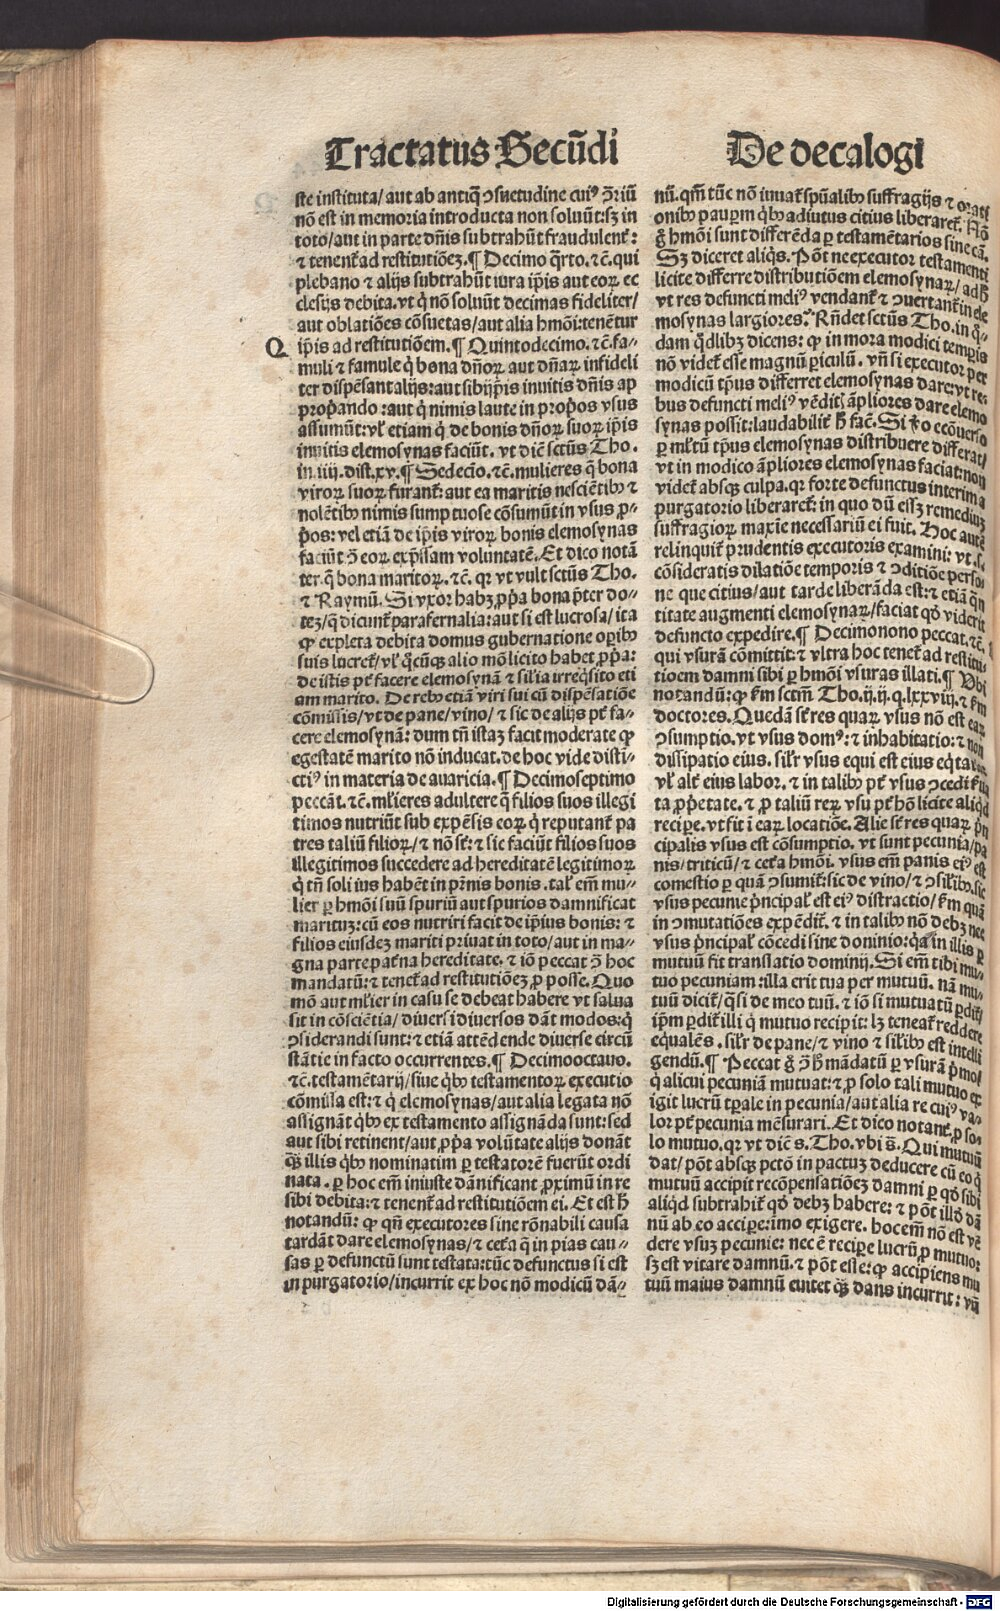 Tractatus Secūdi
De decalogi
ste instituta/ aut ab antiq̄ ↄsuetudine cuiꝰ ↄ̄riū
nō est in memoria introducta non soluūt: sꝫ in
toto/ aut in parte dn̄is subtrahūt fraudulent᷑:
⁊ tenent᷑ ad restitutiōeꝫ. ¶ Decimo q̄rto. ⁊c̄. qui
plebano ⁊ alijs subtrahūt iura ip̄is aut eoꝝ ec
clesijs debita. vt q̇ nō soluūt decimas fideliter/
aut oblatiōes cōsuetas/ aut alia hmōi: tenētur
Q
ip̄is ad restitutiōem. ¶ Quintodecimo. ⁊c̄. fa-
muli ⁊ famule q̇ bona dn̄oꝝ aut dn̄aꝝ infideli
ter dispēsant alijs: aut sibijp̄is inuitis dn̄is ap
prop̄ando: aut q̇ nimis laute in prop̄os vsus
assumūt: vl᷑ etiam q̇ de bonis dn̄oꝝ suoꝝ ip̄is
inuitis elemosynas faciūt. vt dic̄ sctūs Tho.
in .iiij. dist. xv. ¶ Sedecīo. ⁊c̄. mulieres q̄ bona
viroꝝ suoꝝ furant᷑: aut ea maritis nesciētibꝰ ⁊
nolētibꝰ nimis sumptuose cōsumūt in vsus ꝓ-
p̄os: vel etiā de ip̄is viroꝝ bonis elemosynas
faciūt ↄ̄ eoꝝ exp̄ssam voluntatē. Et dico notā
ter. q̄ bona maritoꝝ. ⁊c̄. qꝛ vt vult sctūs Tho.
⁊ Raymū. Si vxor habꝫ ꝓp̄a bona p̄ter do-
teꝫ/ q̄ dicunt᷑ parafernalia: aut si est lucrosa/ ita
ꝙ expleta debita domus gubernatione oꝑibꝰ
suis lucret᷑/ vl᷑ q̇cūqꝫ alio mō licito habet ꝓp̄a:
de istis pt̄ facere elemosynā ⁊ silia irreq̇sito eti
am marito. De rebꝰ etiā viri sui cū dispēsatiōe
cōmissis/ vt de pane/ vino/ ⁊ sic de alijs pt̄ fa-
cere elemosynā: dum tn̄ istaꝫ facit moderate ꝙ
egestatē marito nō inducat. de hoc vide disti-
ctiꝰ in materia de auaricia. ¶ Decimoseptimo
peccāt. ⁊c̄. ml᷑ieres adultere q̄ filios suos illegi
timos nutriūt sub expēsis eoꝝ q̇ reputant᷑ pa
tres taliū filioꝝ/ ⁊ nō st᷑: ⁊ sic faciūt filios suos
illegitimos succedere ad hereditatē legitimoꝝ
q̇ tn̄ soli ius habēt in p̄nis bonis. tal᷑ em̄ mu-
lier ꝑ hmōi suū spuriū aut spurios damnificat
marituꝫ: cū eos nutriri facit de ip̄ius bonis: ⁊
filios eiusdeꝫ mariti priuat in toto/ aut in ma-
gna parte pat̄na hereditate. ⁊ iō peccat ↄ̄ hoc
mandatū: ⁊ tenet᷑ ad restitutiōeꝫ ꝓ posse. Quo
mō aut ml᷑ier in casu se debeat habere vt salua
sit in cōsciētia/ diuersi diuersos dāt modos: q̇
ↄsiderandi sunt: ⁊ etiā attēdende diuerse circū
stātie in facto occurrentes. ¶ Decimooctauo.
⁊c̄. testamētarij/ siue q̇bꝰ testamentoꝝ executio
cōmissa est: ⁊ q̇ elemosynas/ aut alia legata nō
assignāt q̇bꝰ ex testamento assignāda sunt: sed
aut sibi retinent/ aut ꝓp̄a volūtate alijs donāt
qꝫ̄ illis q̇bꝰ nominatim ꝑ testatorē fuerūt ordi
nata. ꝑ hoc em̄ iniuste dānificant ꝓximū in re
sibi debita: ⁊ tenent᷑ ad restitutiōem ei. Et est h̄
notandū: ꝙ qn̄ executores sine rōnabili causa
tardāt dare elemosynas/ ⁊ cet̄a q̄ in pias cau-
sas ꝑ defunctū sunt testata: tūc defunctus si est
in purgatorio/ incurrit ex hoc nō modicū dā-
nū. qm̄ tūc nō iuuat᷑ spūalibꝰ suffragijs ⁊ orati
onibꝰ pauꝑm q̇bꝰ adiutus citius liberaret᷑. Nō
g̊ hmōi sunt differēda ꝑ testamētarios sine cā.
Sꝫ diceret aliq̇s. Pōt ne executor testamenti
licite differre distributiōem elemosynaꝝ/ ad h̄
vt res defuncti meliꝰ vendant᷑ ⁊ ↄuertant᷑ in ele
mosynas largiores. Rn̄det sctūs Tho. in q̄-
dam q̇dlibꝫ dicens: ꝙ in mora modici temꝑis
nō videt᷑ esse magnū ꝑiculū. vn̄ si executor per
modicū tp̄us differret elemosynas dare: vt re-
bus defuncti meliꝰ vēditꝭ āpliores dare elemo
synas possit: laudabilit᷑ h̄ fac̄. Si v̊o ecōuerso
ꝑ ml᷑tū tp̄us elemosynas distribuere differat/
vt in modico āpliores elemosynas faciat: non
videt᷑ absqꝫ culpa. qꝛ forte defunctus interim a
purgatorio liberaret᷑: in quo dū eissꝫ remediuꝫ
suffragioꝝ maxīe necessariū ei fuit. Hoc autē
relinquit᷑ prudentis executoris examini: vt .s.
cōsideratis dilatiōe temporis ⁊ ↄditiōe perso
ne que citius/ aut tarde liberāda est: ⁊ etiā q̄n
titate augmenti elemosynaꝝ/ faciat qd̊ viderit
defuncto expedire. ¶ Decimonono peccat. ⁊c̄.
qui vsurā cōmittit: ⁊ vltra hoc tenet᷑ ad restitu-
tioem damni sibi ꝑ hmōi vsuras illati. ¶ Vbi
notandū: ꝙ km̄ sctm̄ Tho. ij. ij. q. lxxviij. ⁊ km̄
doctores. Quedā st᷑ res quaꝝ vsus nō est eaꝝ
ↄsumptio. vt vsus domꝰ: ⁊ inhabitatio: ⁊ non
dissipatio eius. sil᷑r vsus equi est eius eq̇tatura
vl᷑ alt᷑ eius labor. ⁊ in talibꝰ pt̄ vsus ↄcedi sine
ta ꝓp̄etate. ⁊ ꝓ taliū reꝝ vsu pt̄ hō licite aliq̇d
recipe. vt fit ī eaꝝ locatiōe. Alie st᷑ res quaꝝ p̄n
cipalis vsus est cōsumptio. vt sunt pecunia/ pa
nis/ triticū/ ⁊ cet̄a hmōi. vsus em̄ panis eiꝰ est
comestio ꝑ quā ↄsumit᷑: sic de vino/ ⁊ ↄsil᷑ibꝰ. sic
vsus pecunie p̄ncipal᷑ est eiꝰ distractio/ km̄ quā
in ↄmutatiōes expēdit᷑. ⁊ in talibꝰ nō debꝫ nec
vsus p̄ncipal᷑ cōcedi sine dominio: q̄a in illis ꝑ
mutuū fit translatio dominij. Si em̄ tibi mu-
tuo pecuniam: illa erit tua per mutuū. nā mu-
tuū dicit᷑/ q̄si de meo tuū. ⁊ iō si mutuatū ꝑdit᷑
ip̄m ꝑdit᷑ illi q̇ mutuo recipit: lꝫ teneat᷑ reddere
equalēs. sil᷑r de pane/ ⁊ vino ⁊ sil᷑ibꝰ est intelli
gendū. ¶ Peccat g̊ ↄ̄ h̄ mādatū ꝑ vsurā p̄mo/
q̇ alicui pecuniā mutuat: ⁊ ꝓ solo tali mutuo ex
igit lucrū tꝑale in pecunia/ aut alia re cuiꝰ va-
lor pt̄ pecunia mēsurari. Et dico notant᷑, ꝓ so-
lo mutuo. qꝛ vt dic̄ s. Tho. vbi s̄. Qui mutuū
dat/ pōt absqꝫ pctō in pactuꝫ deducere cū eo q̇
mutuū accipit recōpensatiōeꝫ damni ꝑ qd̊ sibi
aliq̇d subtrahit᷑ qd̊ debꝫ habere: ⁊ pōt illō dā
nū ab eo accipe: imo exigere. hoc em̄ nō est vē
dere vsuꝫ pecunie: nec ē recipe lucrū ꝓ mutuo:
sꝫ est vitare damnū. ⁊ pōt esse: ꝙ accipiens mu
tuū maius damnū euitet qꝫ̄ dans incurrit: vn̄
Digitalisierung gefördert durch die Deutsche Forschungsgemeinschaft - DFG